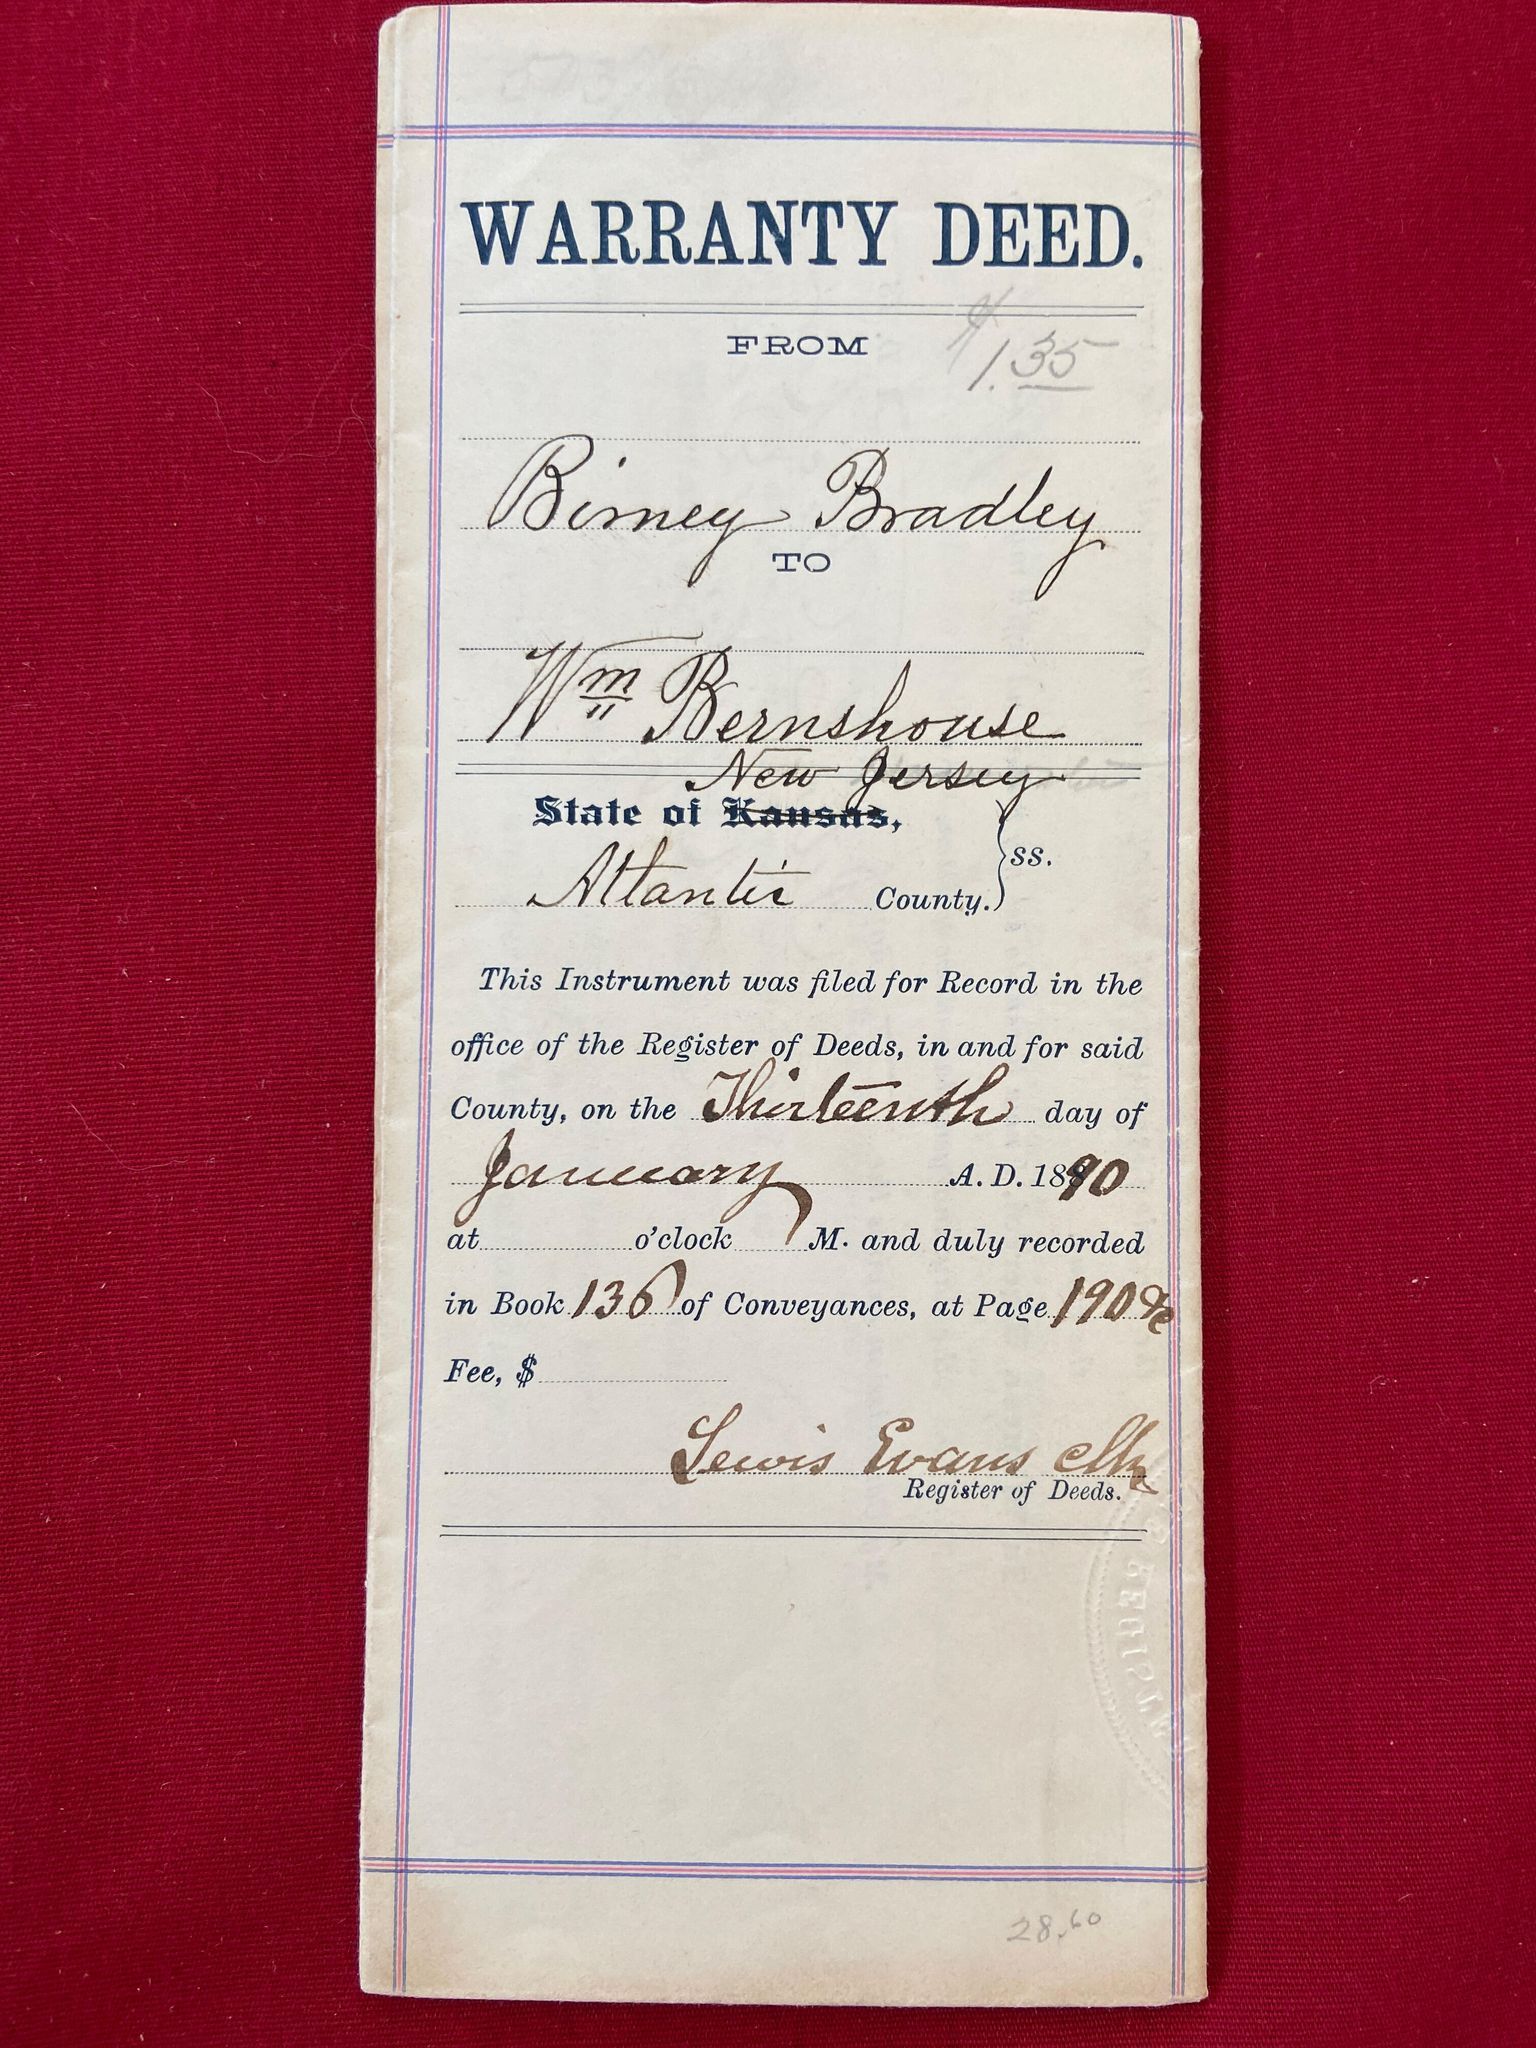 WARRANTY DEED.
FROM
$1.35
Birney Bradley
TO
Wm Bernshouse
New Jersey
State of Kansas,
Atlantic County. } ss.
This Instrument was filed for Record in the
office of the Register of Deeds, in and for said
County, on the Thirteenth day of
January A. D. 1890
at o'clock M. and duly recorded
in Book 136 of Conveyances, at Page 190 &c
Fee, $
Lewis Evans Clk
Register of Deeds.
28.60